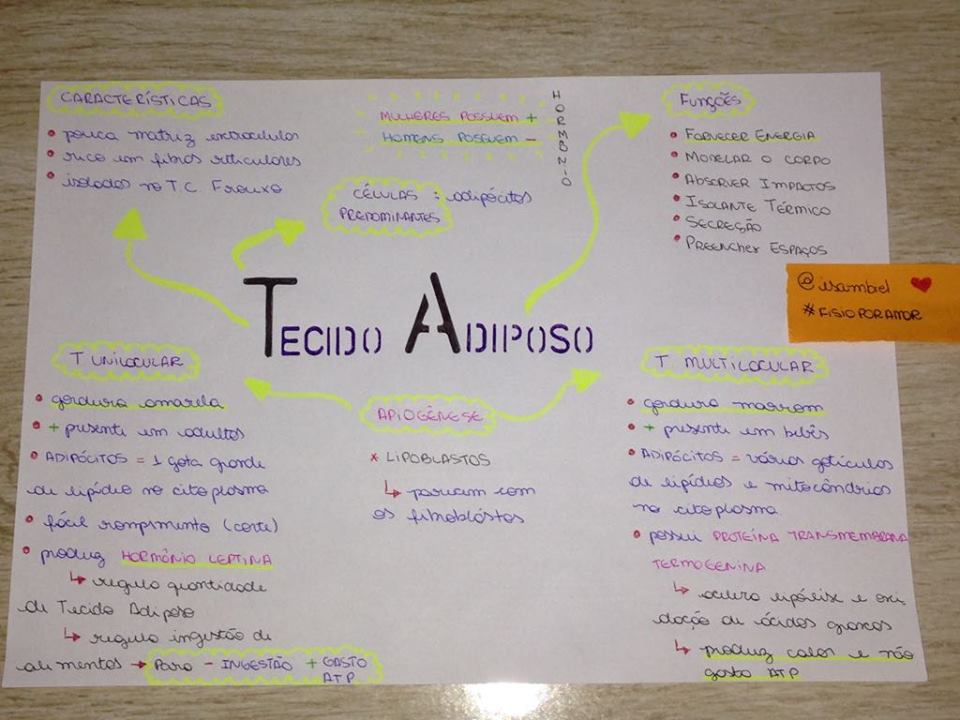 CARACTERÍSTICAS
• pouca matriz extracelular
• rico em fibras reticulares
• isolados no T.C. Frouxo
MULHERES POSSUEM +
HOMENS POSSUEM -
HORMÔNIO
CÉLULAS PREDOMINANTES : adipócitos
Funções
• Fornecer Energia
• Modelar o corpo
• Absorver Impactos
• Isolante Térmico
• Secreção
• Preencher Espaços
@isambiel ♥
#FISIOPORAMOR
TECIDO ADIPOSO
T UNILOCULAR
• gordura amarela
• + presente em adultos
• ADIPÓCITOS = 1 gota grande
de lipídio no citoplasma
• fácil rompimento (corte)
• produz HORMÔNIO LEPTINA
↳ regula quantidade
de Tecido Adiposo
↳ regula ingestão de
alimentos → Para - INGESTÃO + GASTO
ATP
ADIOGÊNESE
* LIPOBLASTOS
↳ pariam com
os fibroblástos
T. MULTILOCULAR
• gordura marrom
• + presente em bebês
• ADIPÓCITOS = várias gotículas
de lipídios e mitocôndrias
no citoplasma
• possui PROTEÍNA TRANSMEMBRANA
TERMOGENINA
↳ acelera lipólise e oxi
dação de ácidos graxos
↳ produz calor e não
gasta ATP